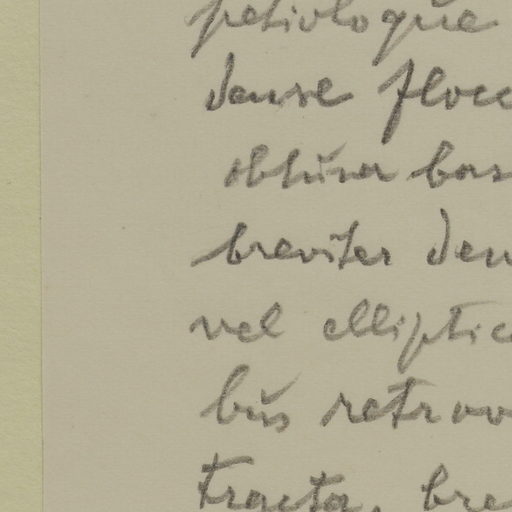 petioloque
dense flocc
obtusa bas
breviter den
vel elliptic
bus retrov
tracta, bre